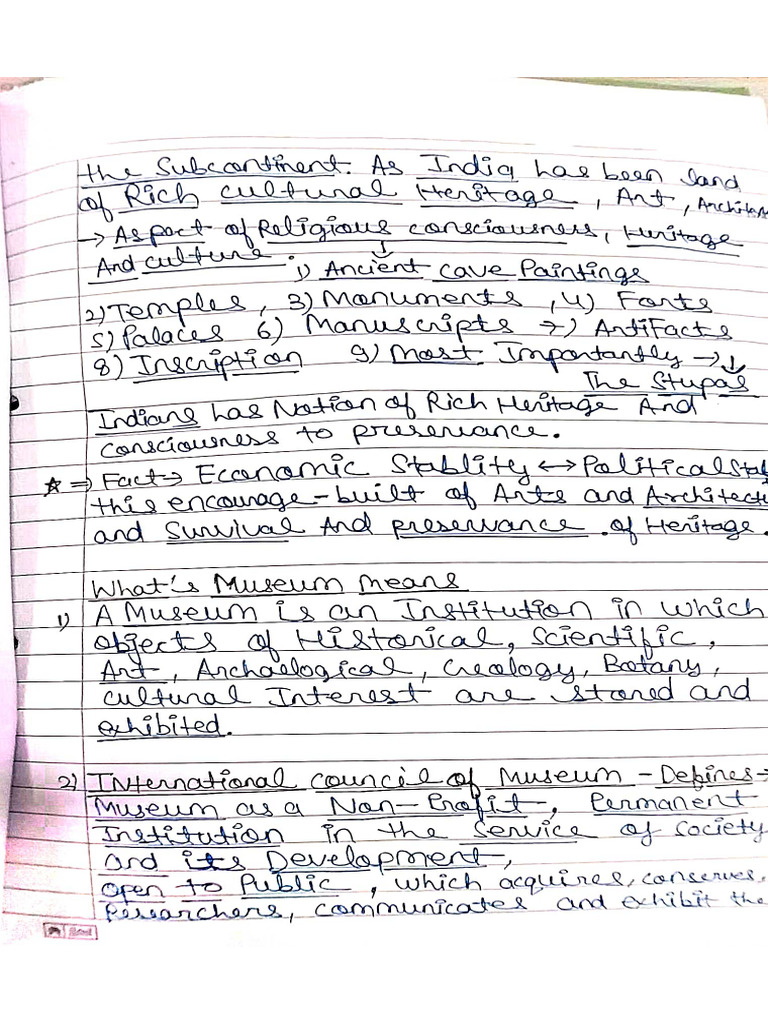 the Subcontinent. As India has been land
of Rich cultural Heritage, Art, Architec
→ Aspect of Religious consciousness, Heritage
And culture. ↓
1) Ancient cave Paintings
2) Temples, 3) Monuments, 4) Forts
5) Palaces 6) Manuscripts 7) ArtiFacts
8) Inscription 9) Most Importantly → ↓
The Stupas
Indians has Notion of Rich Heritage And
consciousness to preservance.
☆ ⇒ Fact → Economic Stablity ↔ Political Stab
this encourage - built of Arts and Architect
and Survival And preservance of Heritage.
What's Museum means
1) A Museum is an Institution in which
objects of Historical, Scientific,
Art, Archaelogical, Geology, Botany,
cultural Interest are stored and
exhibited.
2) International council of Museum - Defines →
Museum as a Non-Profit, Permanent
Institution in the service of society
and its Development,
open to Public, which acquires, conserves,
Researchers, communicates and exhibit the